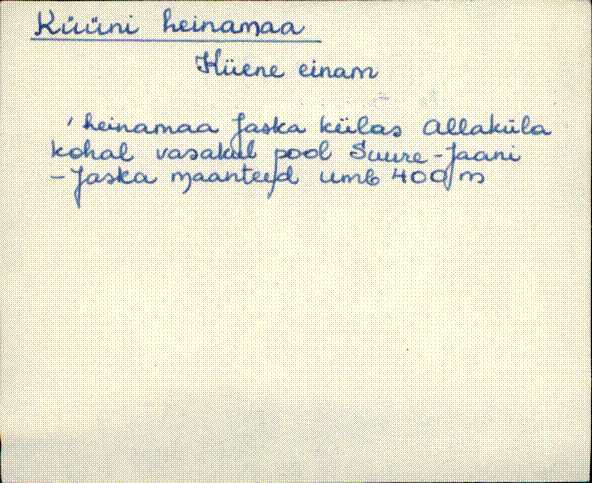 Küüni heinamaa
Küene einam
'heinamaa Jaska külas Allaküla
kohal vasakul pool Suure-Jaani
-Jaska maanteed umb 400 m